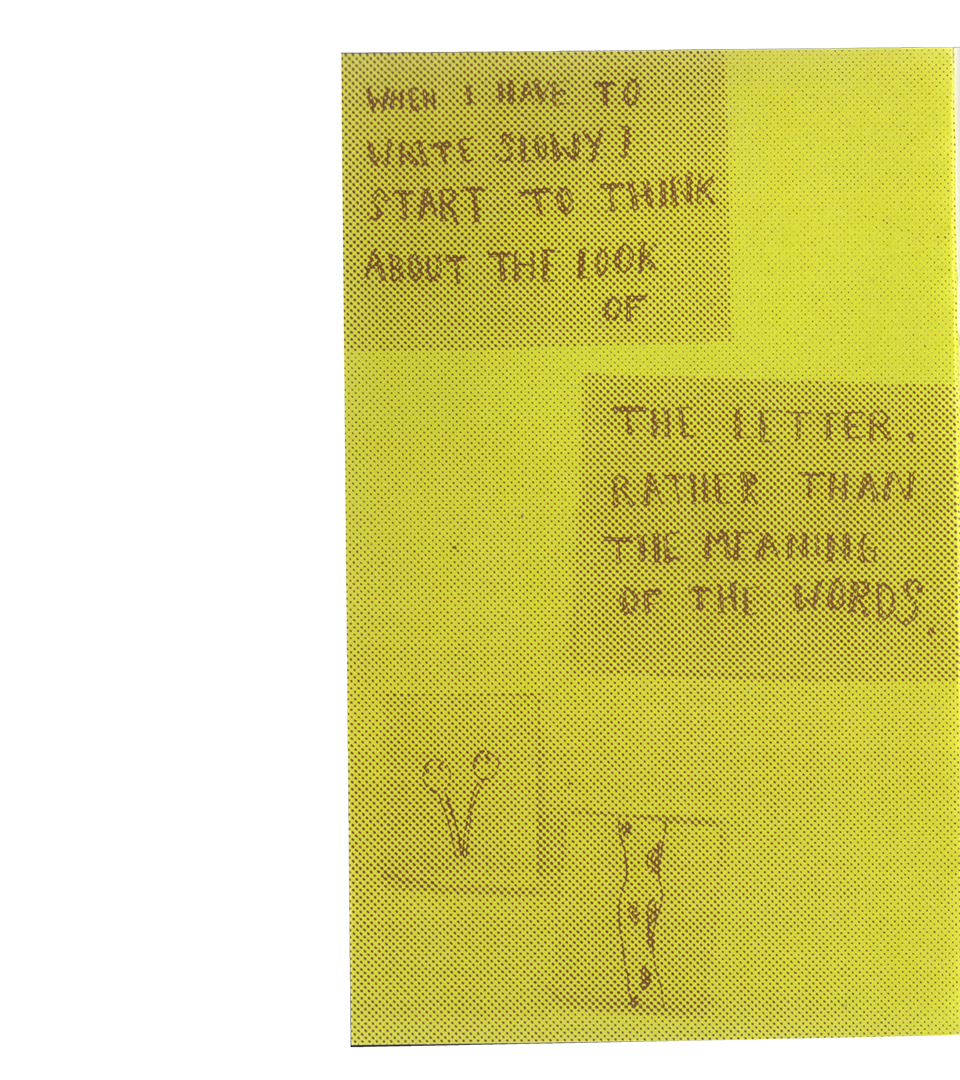 WHEN I HAVE TO
WRITE SLOWY I
START TO THINK
ABOUT THE LOOK
OF
THE LETTER,
RATHER THAN
THE MEANING
OF THE WORDS.